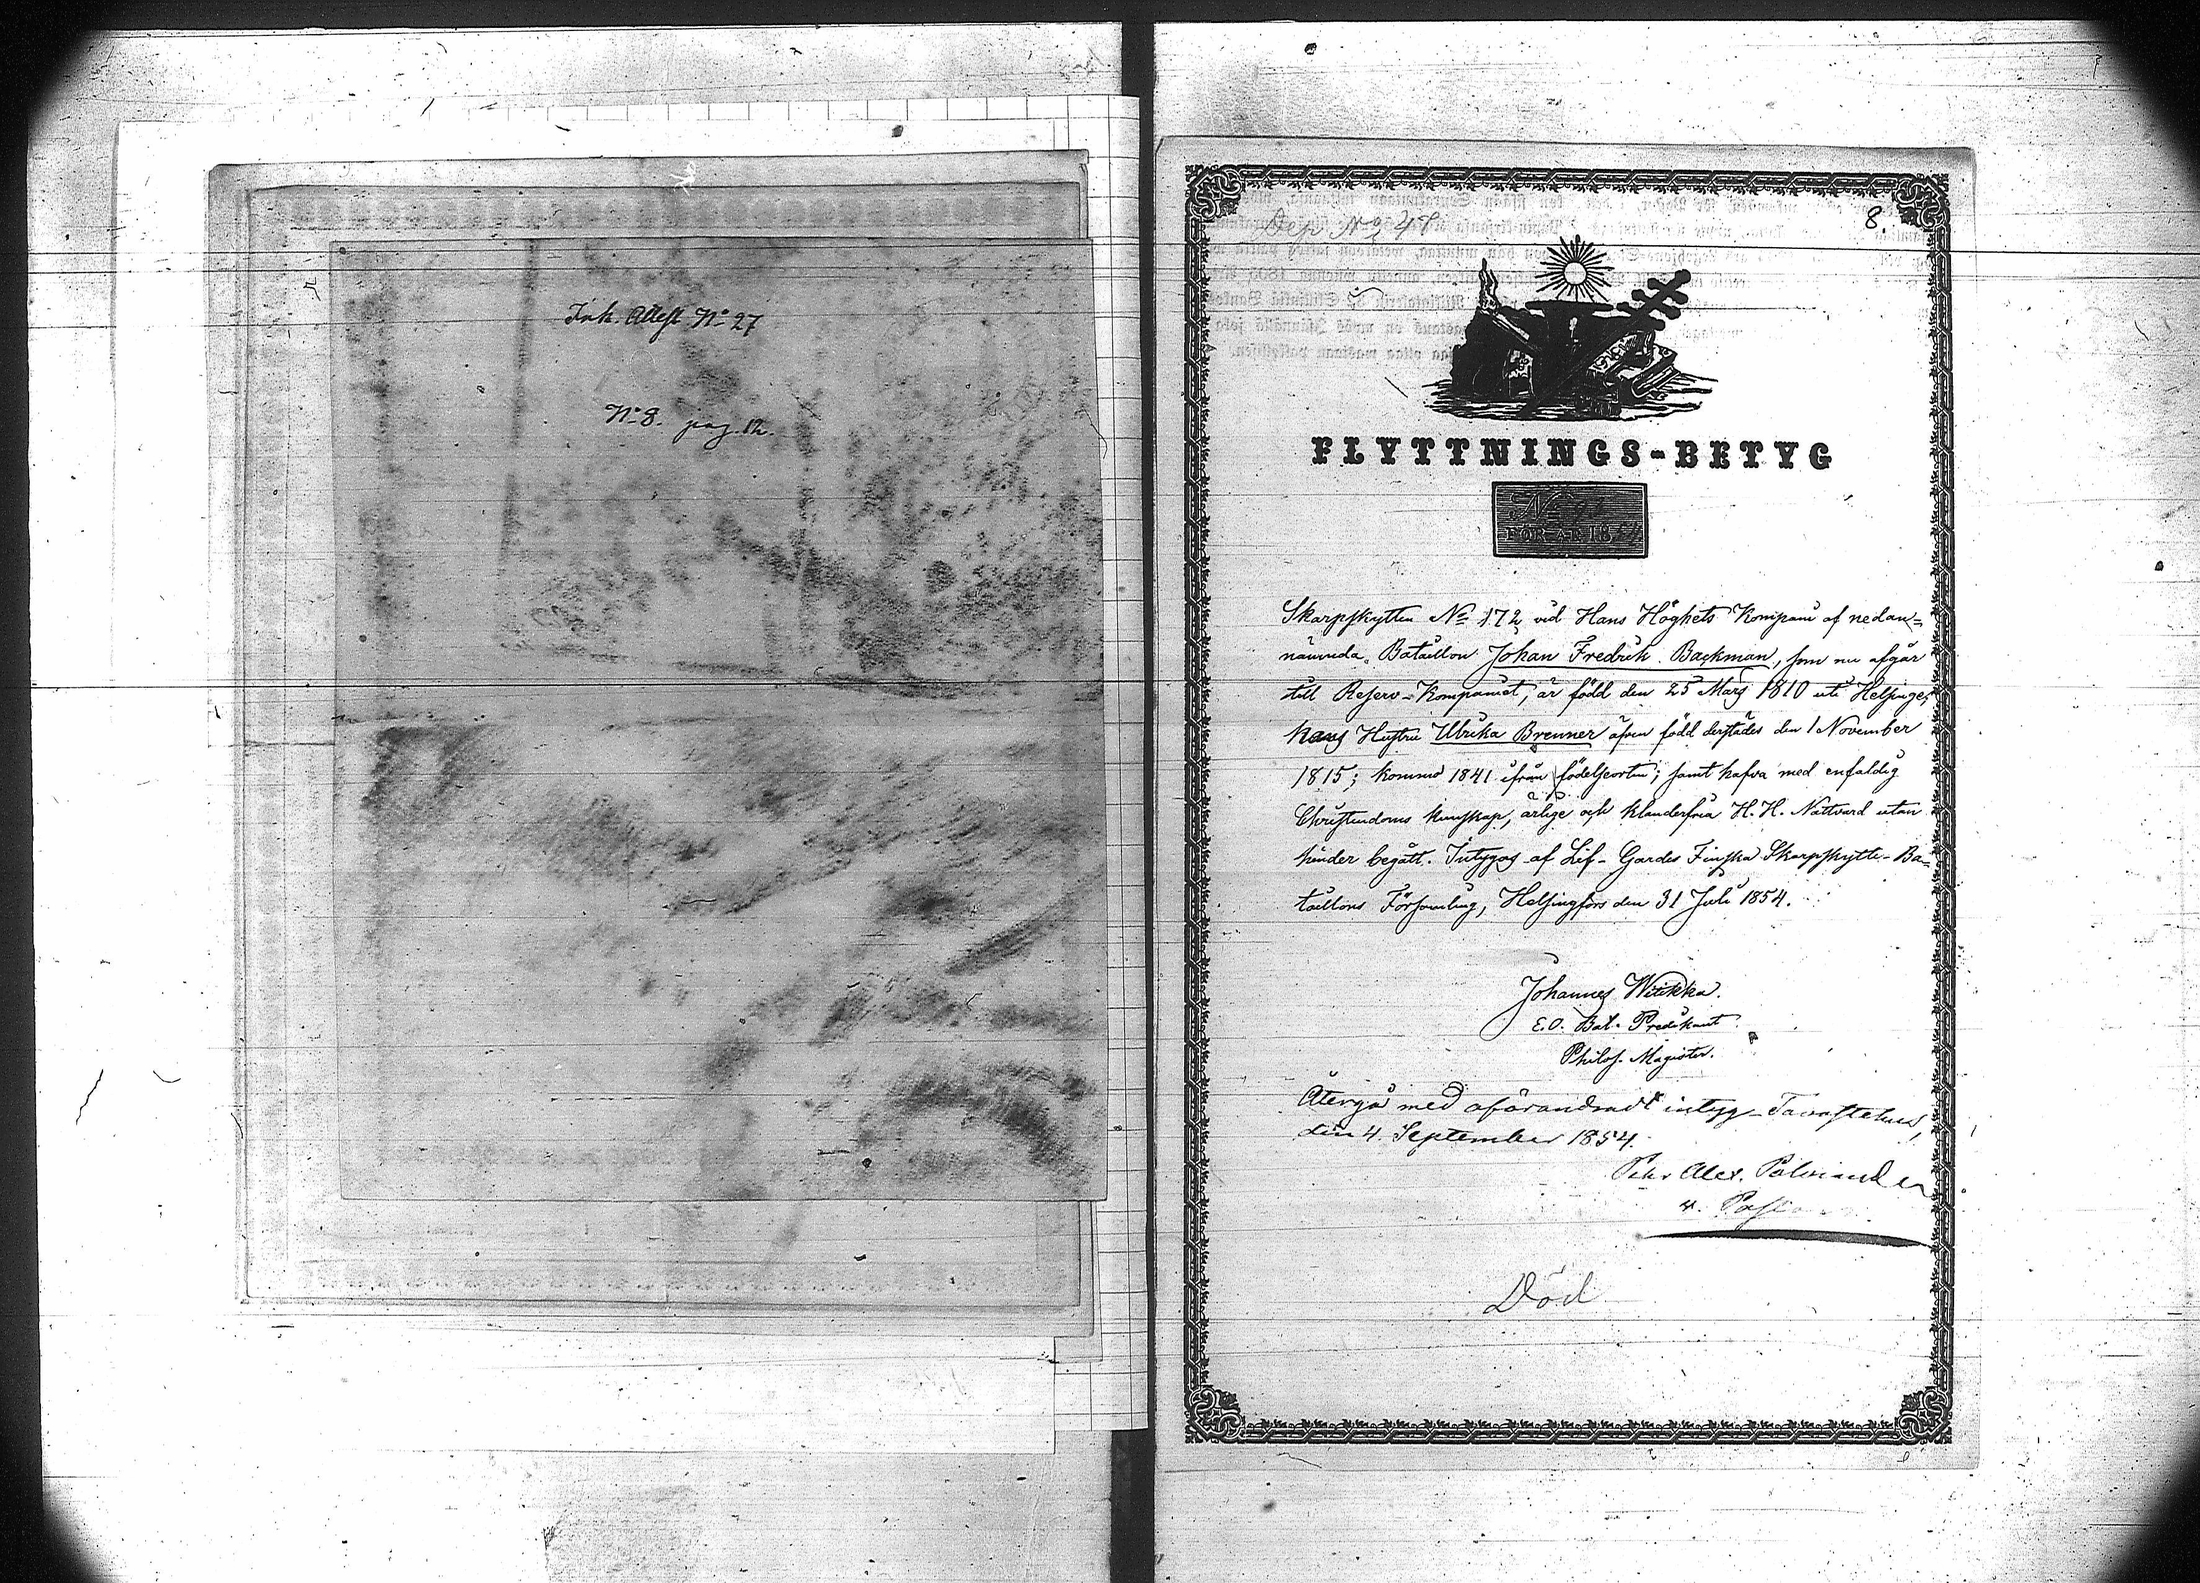 Ink. Attest No 27
No 8. pag. 12.
8.
FLYTTNINGS-BETYG
No
FÖR ÅR 18
Skarpskytten No 172 vid Hans Höghets Kompani af nedan=
nämnda Bataillon Johan Fredrik Backman, som nu afgår
till Reserv-Kompaniet, är född den 25 Mars 1810 uti Helsinge,
hans Hustru Ulrika Brenner äfven född derstädes den 1 November
1815; komna 1841 ifrån födelseorten; samt hafva med enfaldig
Christendoms kunskap, ärlige och klanderfria H. H. Nattvard utan
hinder begått. Intygas af Lif-Gardes Finska Skarpskytte-Ba=
taillons Församling, Helsingfors den 31 Juli 1854.
Johannes Witikka.
E.O. Bat. Predikant
Philos. Magister.
Återgå med oförändradt intyg Tavastehus,
den 4 September 1854.
Pehr Alex. Palviander
v. Past
Död